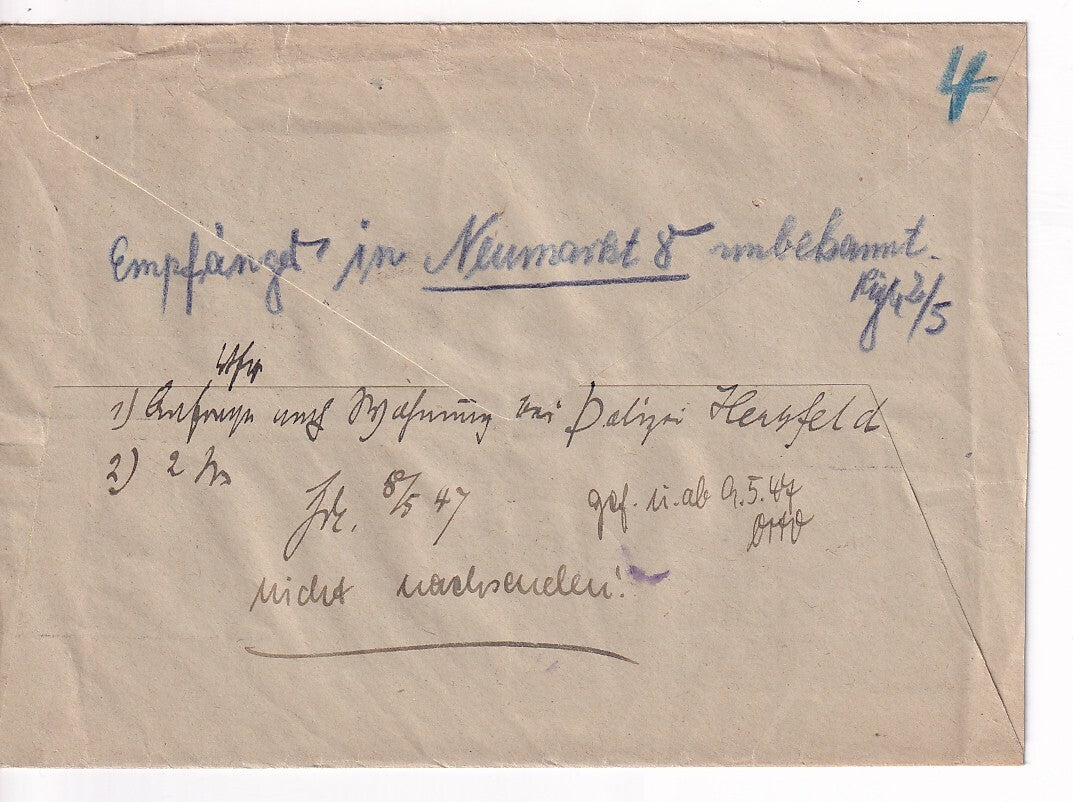 4
Empfänger in Neumarkt 8 unbekannt.
2/5
1) Anfrage nach Wohnung bei Polizei Hersfeld
2) 2 Wo
8/5 47 gef. u. ab 9.5.47
Otto
nicht nachsenden!